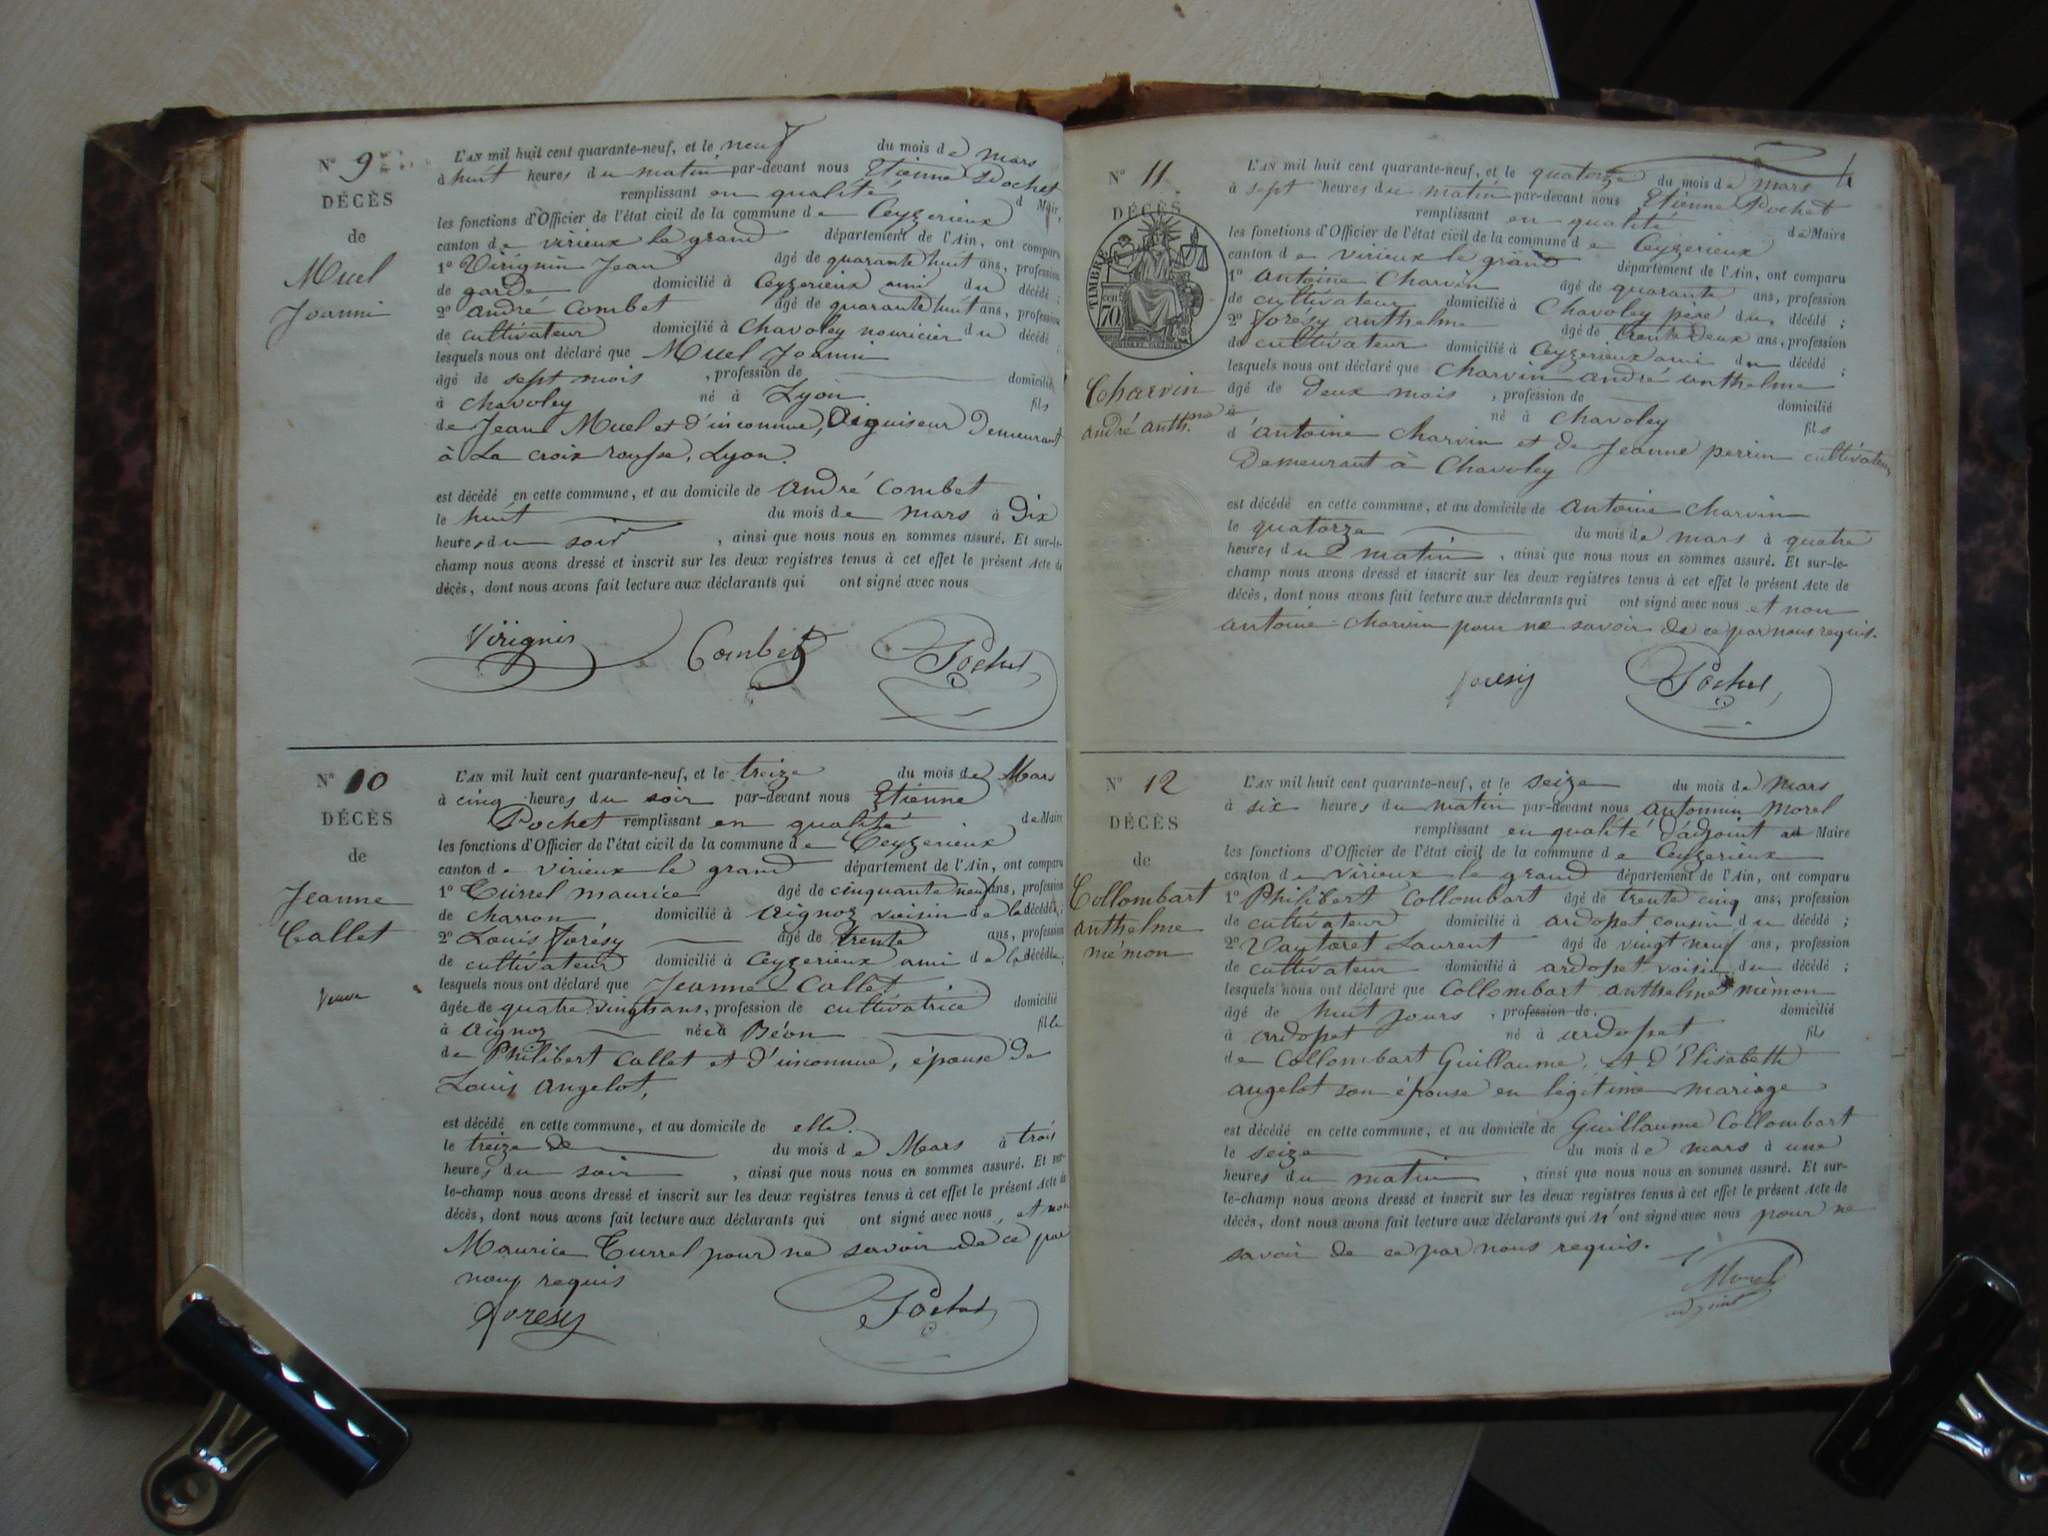 N° 9
DÉCÈS
de
Muel
Joanni
L'AN mil huit cent quarante-neuf, et le neuf du mois de mars
à huit heures du matin par-devant nous Etienne Pochet
remplissant en qualité d Maire
les fonctions d'Officier de l'état civil de la commune de Ceyzerieux
canton de virieux le grand département de l'Ain, ont comparu
1° Virignin Jean âgé de quarante huit ans, profession
de garde domicilié à Ceyzerieux ami du décédé ;
2° andré Combet âgé de quarante huit ans, profession
de cultivateur domicilié à Chavoley nouricier du décédé ;
lesquels nous ont déclaré que Muel Joanni
âgé de sept mois , profession de domicilié
à Chavoley né à Lyon fils
de Jean Muel et d'inconnue, Aiguiseur Demeurant
à La croix rousse, Lyon.
est décédé en cette commune, et au domicile de andré Combet
le huit du mois de mars à Dix
heures du soir , ainsi que nous nous en sommes assuré. Et sur-le-
champ nous avons dressé et inscrit sur les deux registres tenus à cet effet le présent Acte de
décès, dont nous avons fait lecture aux déclarants qui ont signé avec nous
Virignin Combet Pochet
N° 10
DÉCÈS
de
Jeanne
Callet
veuve
L'AN mil huit cent quarante-neuf, et le treize du mois de Mars
à cinq heures du soir par-devant nous Etienne
Pochet remplissant en qualité de Maire
les fonctions d'Officier de l'état civil de la commune de Ceyzerieux
canton de virieux le grand département de l'Ain, ont comparu
1° Turrel maurice âgé de cinquante neuf ans, profession
de charron domicilié à Aignoz voisin de la décédée ;
2° Louis Forésy âgé de trente ans, profession
de cultivateur domicilié à Ceyzerieux ami de la décédée ;
lesquels nous ont déclaré que Jeanne Callet
âgée de quatre vingts ans, profession de cultivatrice domicilié
à Aignoz née à Béon fille
de Philibert Callet et d'inconnue, épouse de
Louis Angelot,
est décédé en cette commune, et au domicile de elle.
le treize de du mois de Mars à trois
heures du soir , ainsi que nous nous en sommes assuré. Et sur-
le-champ nous avons dressé et inscrit sur les deux registres tenus à cet effet le présent Acte de
décès, dont nous avons fait lecture aux déclarants qui ont signé avec nous, et non
Maurice Turrel pour ne savoir de ce par
nous requis
Forésy Pochet
N° 11
DÉCÈS
TIMBRE
70
Charvin
andré anth.me
L'AN mil huit cent quarante-neuf, et le quatorze du mois de mars
à sept heures du matin par-devant nous Etienne Pochet
remplissant en qualité de Maire
les fonctions d'Officier de l'état civil de la commune de Ceyzerieux
canton de virieux le grand département de l'Ain, ont comparu
1° antoine Charvin âgé de quarante ans, profession
de cultivateur domicilié à Chavoley pere du décédé ;
2° Forésy anthelme âgé de trente deux ans, profession
de cultivateur domicilié à Ceyzerieux ami du décédé ;
lesquels nous ont déclaré que Charvin andré anthelme
âgé de Deux mois , profession de domicilié
à né à Chavoley fils
d'antoine Charvin et de Jeanne perrin cultivateurs
Demeurant à Chavoley
est décédé en cette commune, et au domicile de antoine Charvin
le quatorze du mois de mars à quatre
heures du matin , ainsi que nous nous en sommes assuré. Et sur-le-
champ nous avons dressé et inscrit sur les deux registres tenus à cet effet le présent Acte de
décès, dont nous avons fait lecture aux déclarants qui ont signé avec nous et non
antoine Charvin pour ne savoir de ce par nous requis.
foresy Pochet
N° 12
DÉCÈS
de
Collombart
anthelme
mémon
L'AN mil huit cent quarante-neuf, et le seize du mois de mars
à six heures du matin par-devant nous antonnin Morel
remplissant en qualité d'adjoint au Maire
les fonctions d'Officier de l'état civil de la commune de Ceyzerieux
canton de virieux le grand département de l'Ain, ont comparu
1° Philibert Collombart âgé de trente cinq ans, profession
de cultivateur domicilié à ardosset cousin du décédé ;
2° Laurent âgé de vingt neuf ans, profession
de cultivateur domicilié à ardosset voisin du décédé ;
lesquels nous ont déclaré que Collombart anthelme mémon
âgé de huit jours , profession de domicilié
à ardosset né à ardosset fils
de Collombart Guillaume, et d'Elisabeth
angelot son épouse en légitime mariage
est décédé en cette commune, et au domicile de Guillaume Collombart
le seize du mois de mars à une
heures du matin , ainsi que nous nous en sommes assuré. Et sur-
le-champ nous avons dressé et inscrit sur les deux registres tenus à cet effet le présent Acte de
décès, dont nous avons fait lecture aux déclarants qui n'ont signé avec nous pour ne
savoir de ce par nous requis.
Morel
adjoint